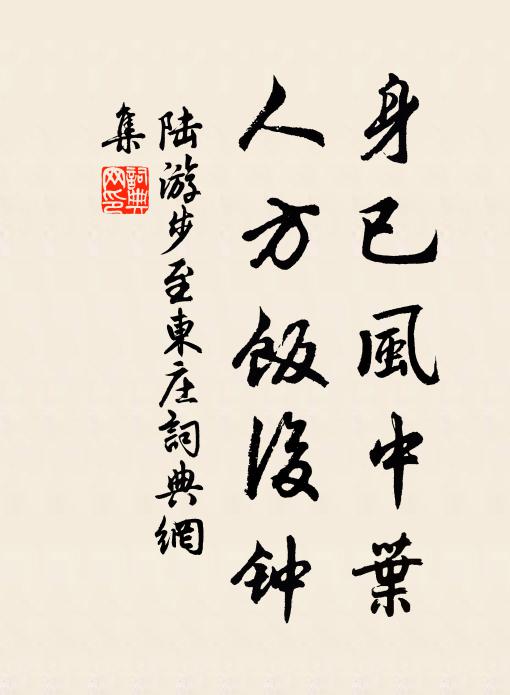 身已風中葉
人方飯後钟
陆游步至東庄詞典網
集
詞典網印